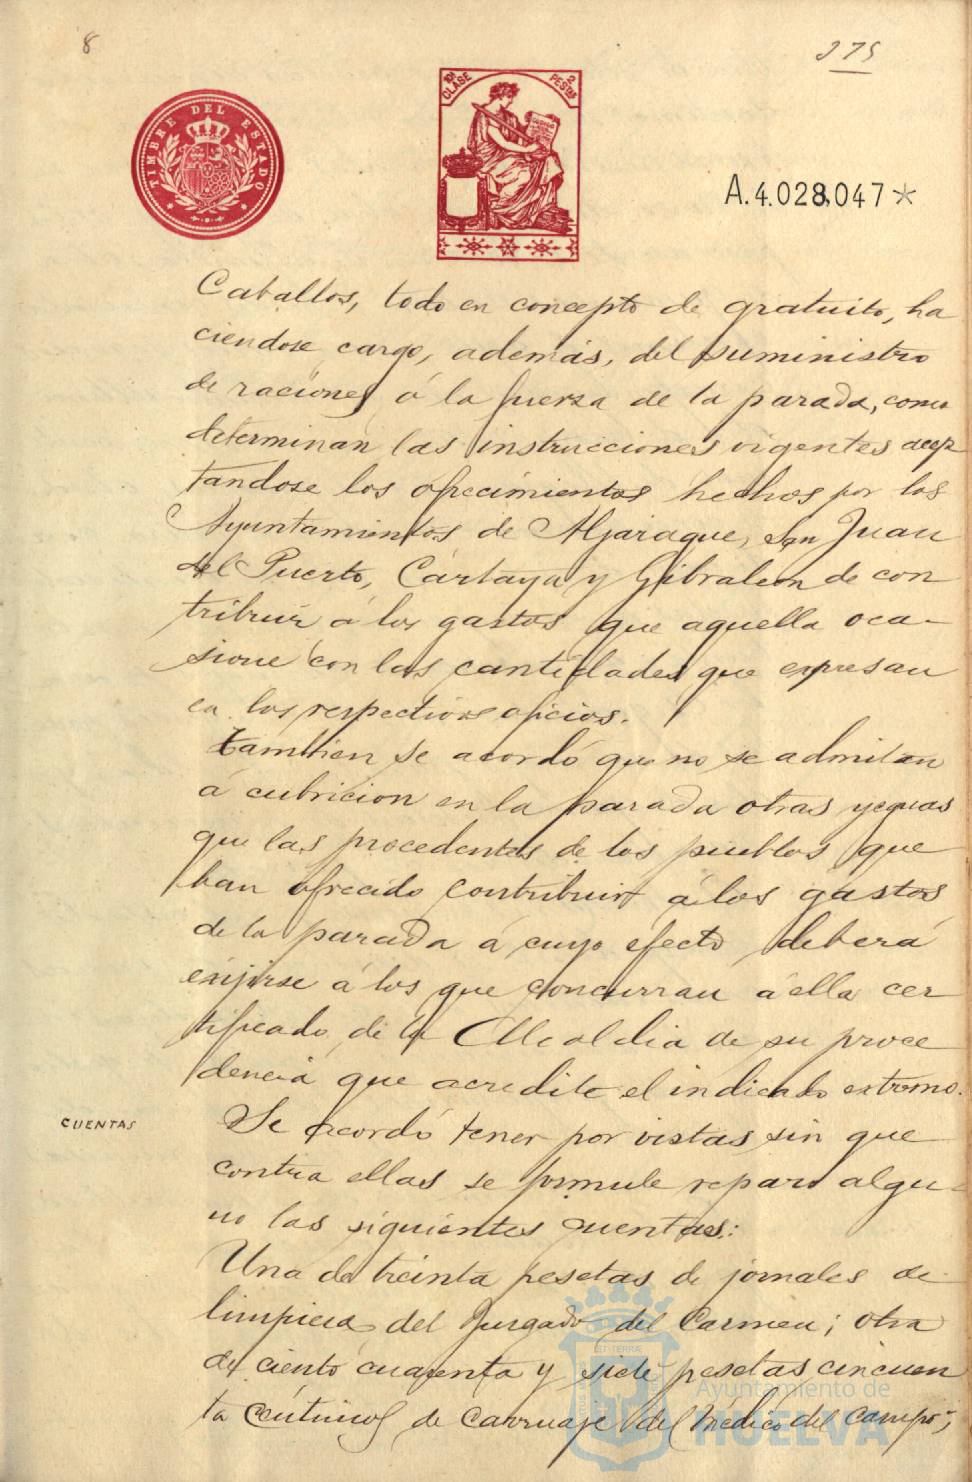 8
275
TIMBRE DEL ESTADO
10ª CLASE
2 PESETAS
A.4.028,047*
Caballos, todo en concepto de gratuito, ha
ciendose cargo, además, del suministro
de raciones á la fuerza de la parada, como
determinan las instrucciones vigentes acep
tandose los ofrecimientos hechos por los
Ayuntamientos de Aljaraque, San Juan
del Puerto, Cartaya y Gibraleon de con
tribuir á los gastos que aquella oca-
sione con las cantidades que expresan
en los respectivos oficios.
Tambien se acordó que no se admitan
á cubricion en la parada otras yeguas
que las procedentes de los pueblos que
han ofrecido contribuir á los gastos
de la parada á cuyo efecto deberá
exijirse á los que concurran á ella cer
tificado de la Alcaldia de su proce
dencia que acredite el indicado extremo.
CUENTAS
Se acordó tener por vistas sin que
contra ellas se formule reparo algu-
no las siguientes cuentas:
Una de treinta pesetas de jornales de
limpieza del Juzgado del Carmen; otra
de ciento cuarenta y siete pesetas cincuen
ta céntimos de carruaje del médico del campo;
Ayuntamiento de
HUELVA